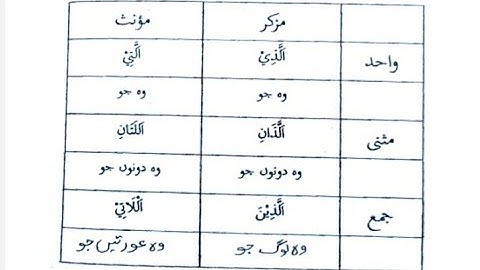 مزکر مؤنث
واحد اَلَّذِيْ اَلَّتِيْ
وہ جو وہ جو
مثنی اَلَّذَانِ اَللَّتَانِ
وہ دونوں جو وہ دونوں جو
جمع اَلَّذِيْنَ اَلْلَاتِيْ
وہ لوگ جو وہ عورتیں جو